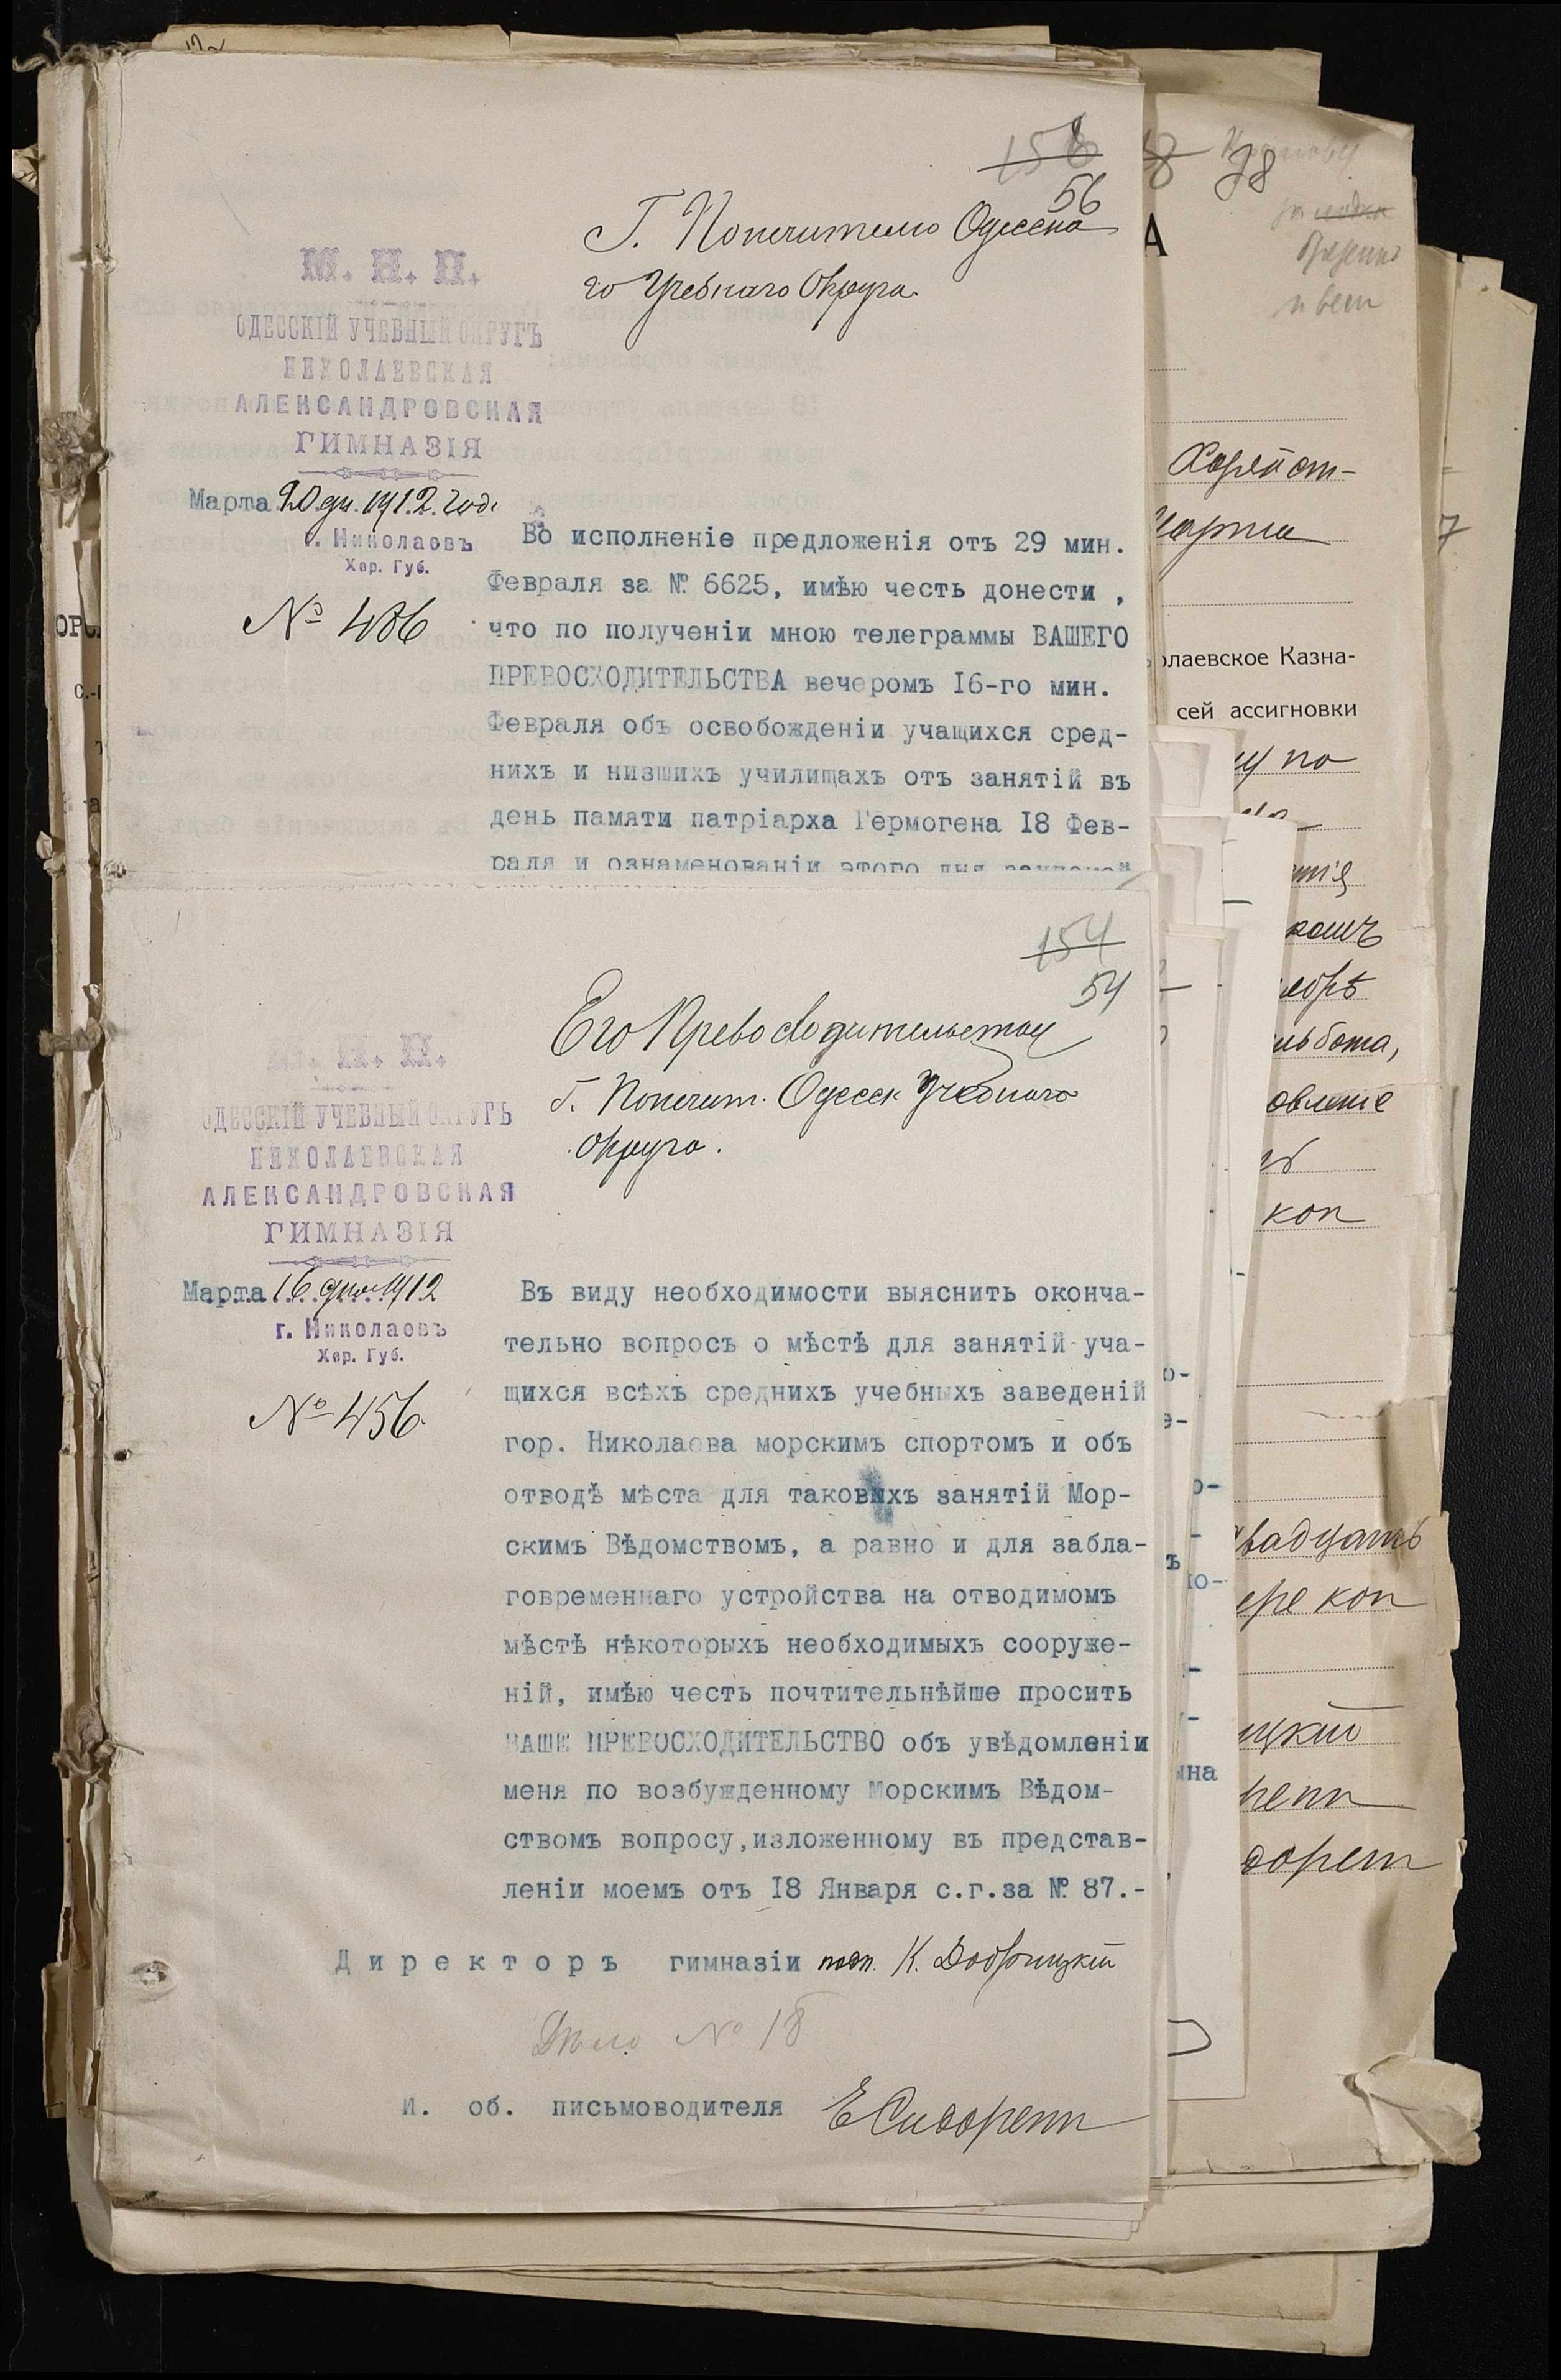 156
56
Г. Попечителю Одесска
го Учебнаго Округа.
М. Н. П.
ОДЕССКІЙ УЧЕБНЫЙ ОКРУГЪ
НИКОЛАЕВСКАЯ
АЛЕКСАНДРОВСКАЯ
ГИМНАЗІЯ
Марта 20 дн. 1912 год
г. Николаевъ
Хер. Губ.
№ 486
Во исполненіе предложенія отъ 29 мин.
Февраля за № 6625, имѣю честь донести ,
что по полученіи мною телеграммы ВАШЕГО
ПРЕВОСХОДИТЕЛЬСТВА вечеромъ 16-го мин.
Февраля объ освобожденіи учащихся сред-
нихъ и низшихъ училищахъ отъ занятій въ
день памяти патріарха Гермогена 18 Фев-
раля и ознаменованіи этого дня
154
54
Его Превосходительству
Г. Попечит. Одесск Учебнаго
Округа.
М. Н. П.
ОДЕССКІЙ УЧЕБНЫЙ ОКРУГЪ
НИКОЛАЕВСКАЯ
АЛЕКСАНДРОВСКАЯ
ГИМНАЗІЯ
Марта 16 дня 1912
г. Николаевъ
Хер. Губ.
№ 456.
Въ виду необходимости выяснить оконча-
тельно вопросъ о мѣстѣ для занятій уча-
щихся всѣхъ среднихъ учебныхъ заведеній
гор. Николаева морскимъ спортомъ и объ
отводѣ мѣста для таковыхъ занятій Мор-
скимъ Вѣдомствомъ, а равно и для забла-
говременнаго устройства на отводимомъ
мѣстѣ нѣкоторыхъ необходимыхъ сооруже-
ній, имѣю честь почтительнѣйше просить
ВАШЕ ПРЕВОСХОДИТЕЛЬСТВО объ увѣдомленіи
меня по возбужденному Морскимъ Вѣдом-
ствомъ вопросу,изложенному въ представ-
леніи моемъ отъ 18 Января с.г.за № 87.-
Директоръ гимназіи подп. К. Добрницкій
Дѣло № 18
И. об. письмоводителя Е Сидоренк
38
А
Хозяйст-
марта
олаевское Казна-
сей ассигновки
по
коп
двадцать
коп